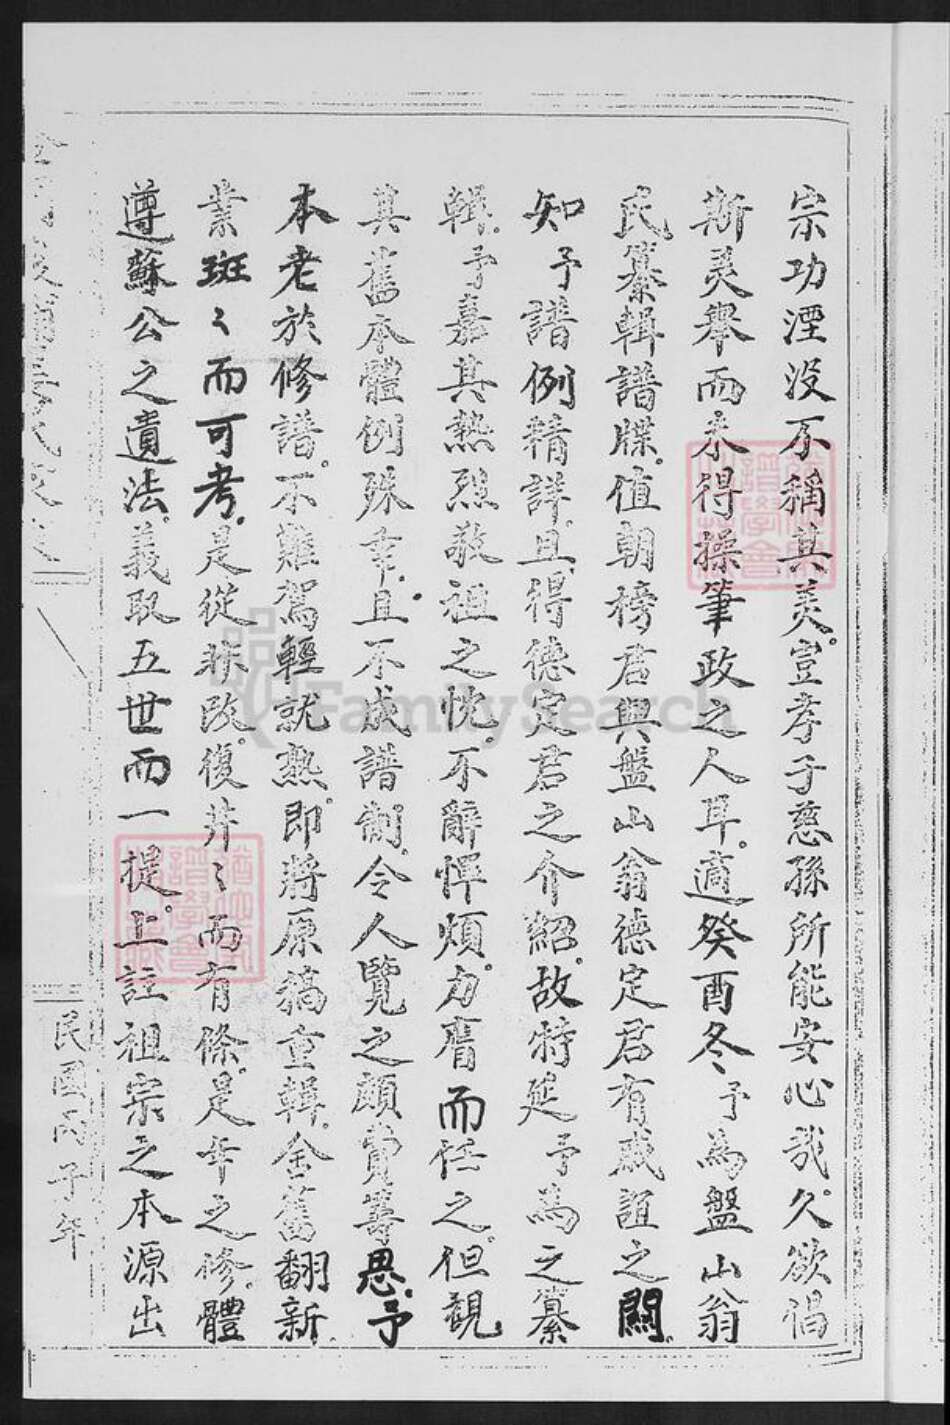 宗功湮没不稱其美。豈孝子慈孫所能安心哉。久欲倡
斯美舉而未得操筆政之人耳。適癸酉冬予為盤山翁
氏纂輯譜牒。值朝榜君與盤山翁德定君有戚誼之關。
知予譜例精詳。且得德定君之介紹。故特延予為之纂
輯。予嘉其熱烈敬祖之忱。不辭憚煩。力膺而任之。但觀
其舊本體例殊乖。且不成譜制。令人覽之頗費籌思。予
本老於修譜。不難駕輕就熟。即將原稿重輯。全舊翻新。
業斑々而可考。是從昨改。復井々而有條。是年之修。體
遵蘇公之遺法。義取五世而一提。上註祖宗之本源出
民國丙子年
FamilySearch